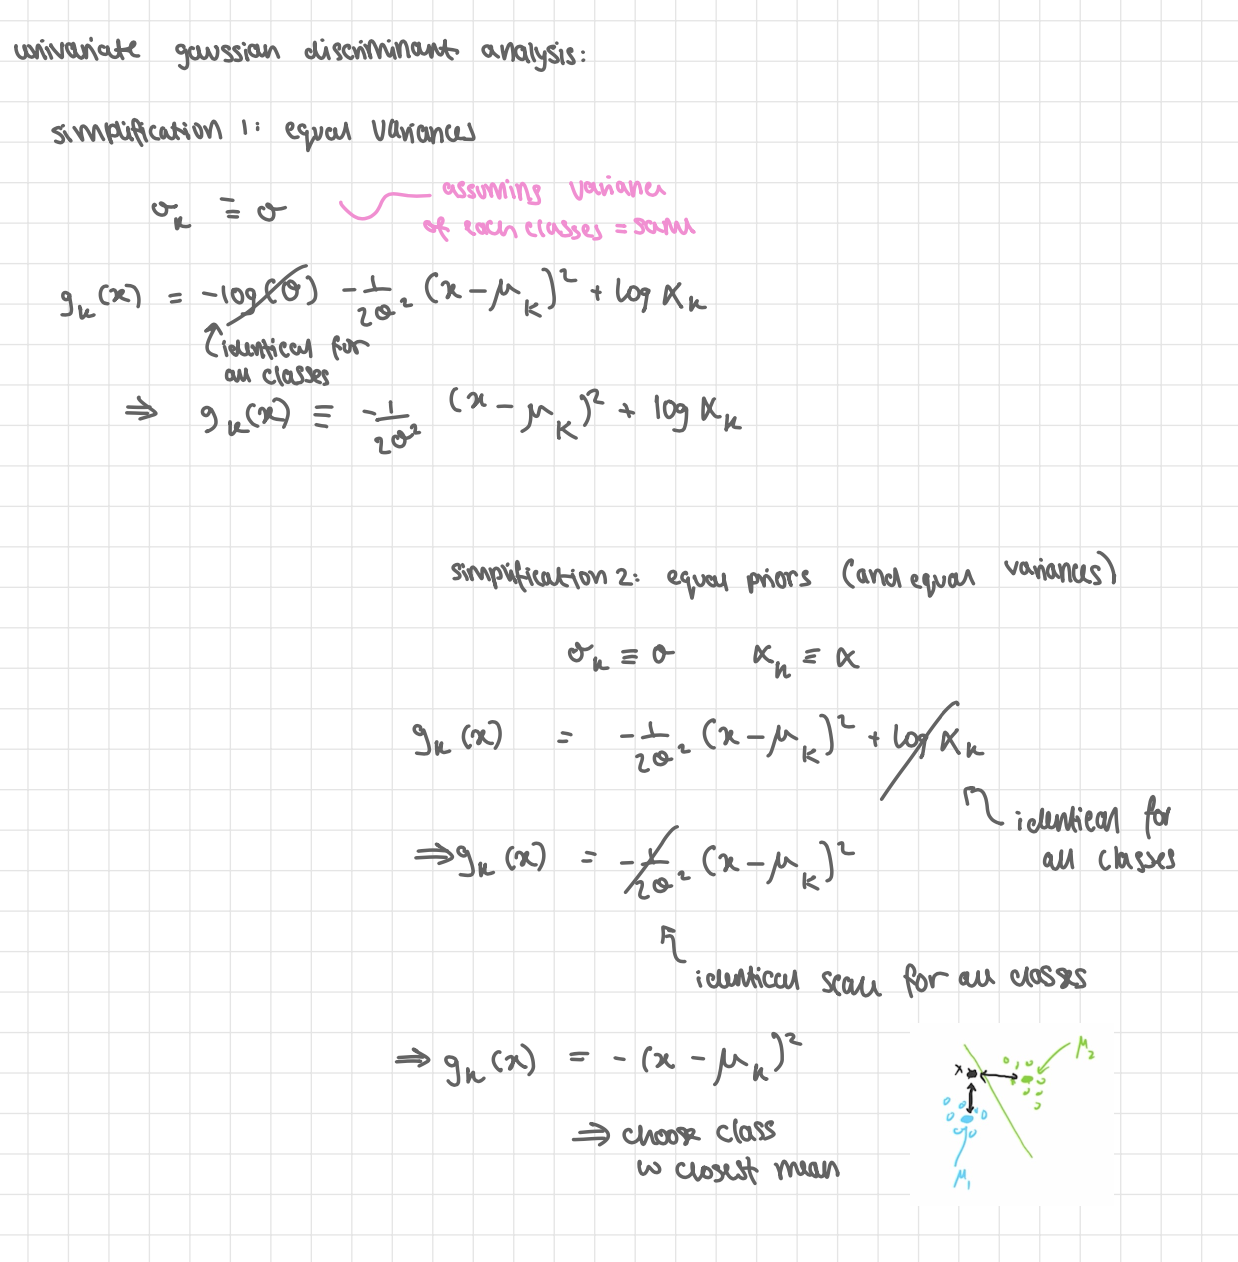 univariate gaussian discriminant analysis:
simplification 1: equal variances
σₖ ≡ σ
assuming variances
of each classes = same
gₖ(x) = -log(σ) - 1/2σ² (x - μₖ)² + log αₖ
identical for
all classes
⇒ gₖ(x) ≡ - 1/2σ² (x - μₖ)² + log αₖ
simplification 2: equal priors (and equal variances)
σₖ ≡ σ αₖ ≡ α
gₖ(x) = - 1/2σ² (x - μₖ)² + log αₖ
identical for
all classes
⇒ gₖ(x) = - 1/2σ² (x - μₖ)²
identical scale for all classes
⇒ gₖ(x) = - (x - μₖ)²
⇒ choose class
w closest mean
μ₂
x
μ₁